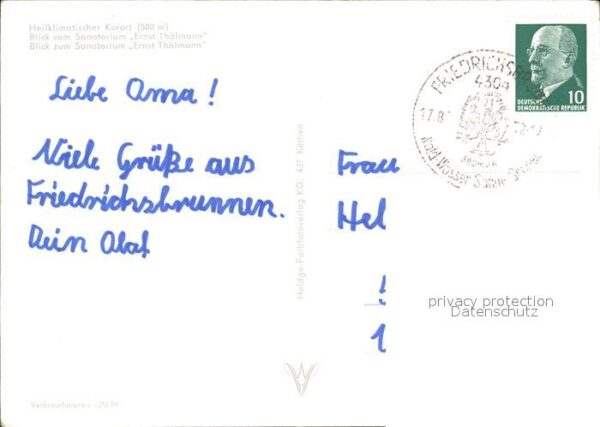 Heilklimatischer Kurort (580 m)
Blick vom Sanatorium „Ernst Thälmann"
Blick zum Sanatorium „Ernst Thälmann"
Liebe Ama!
Viele Grüße aus
Friedrichsbrunnen.
Dein Olaf
Heldge-Farbfotoverlag KG, 437 Köthen
Verbraucherpreis -,20 M
4304
17.8.
DEUTSCHE
DEMOKRATISCHE REPUBLIK
10
Frau
Hel
!
1
privacy protection
Datenschutz